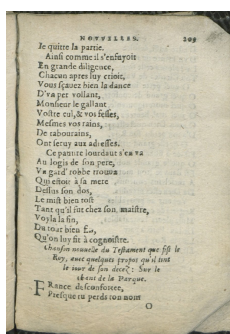 NOVVELLES. 209
Ie quitte la partie.
Ainsi comme il s'enfuyoit
En grande diligence,
Chacun apres luy crioit,
Vous sçauez bien la dance
D'va per vollant,
Monsieur le gallant
Vostre cul, & vos fesses,
Mesmes vos rains,
De rabourains,
Ont seruy aux adresses.
Ce pauure lourdaut s'en va
Au logis de son pere,
Vn gard' robbe trouua
Qui estoit à sa mere
Dessus son dos,
Le mist bien tost
Tant qu'il fut chez son maistre,
Voyla la fin,
Du tout bien f..,
Qu'on luy fit à cognoistre.
Chanson nouuelle du Testament que fist le
Roy, auec quelques propos qu'il tint
le iour de son decez: Sur le
chant de la Parque.
FRance desconfortee,
Presque tu perds ton nom
O